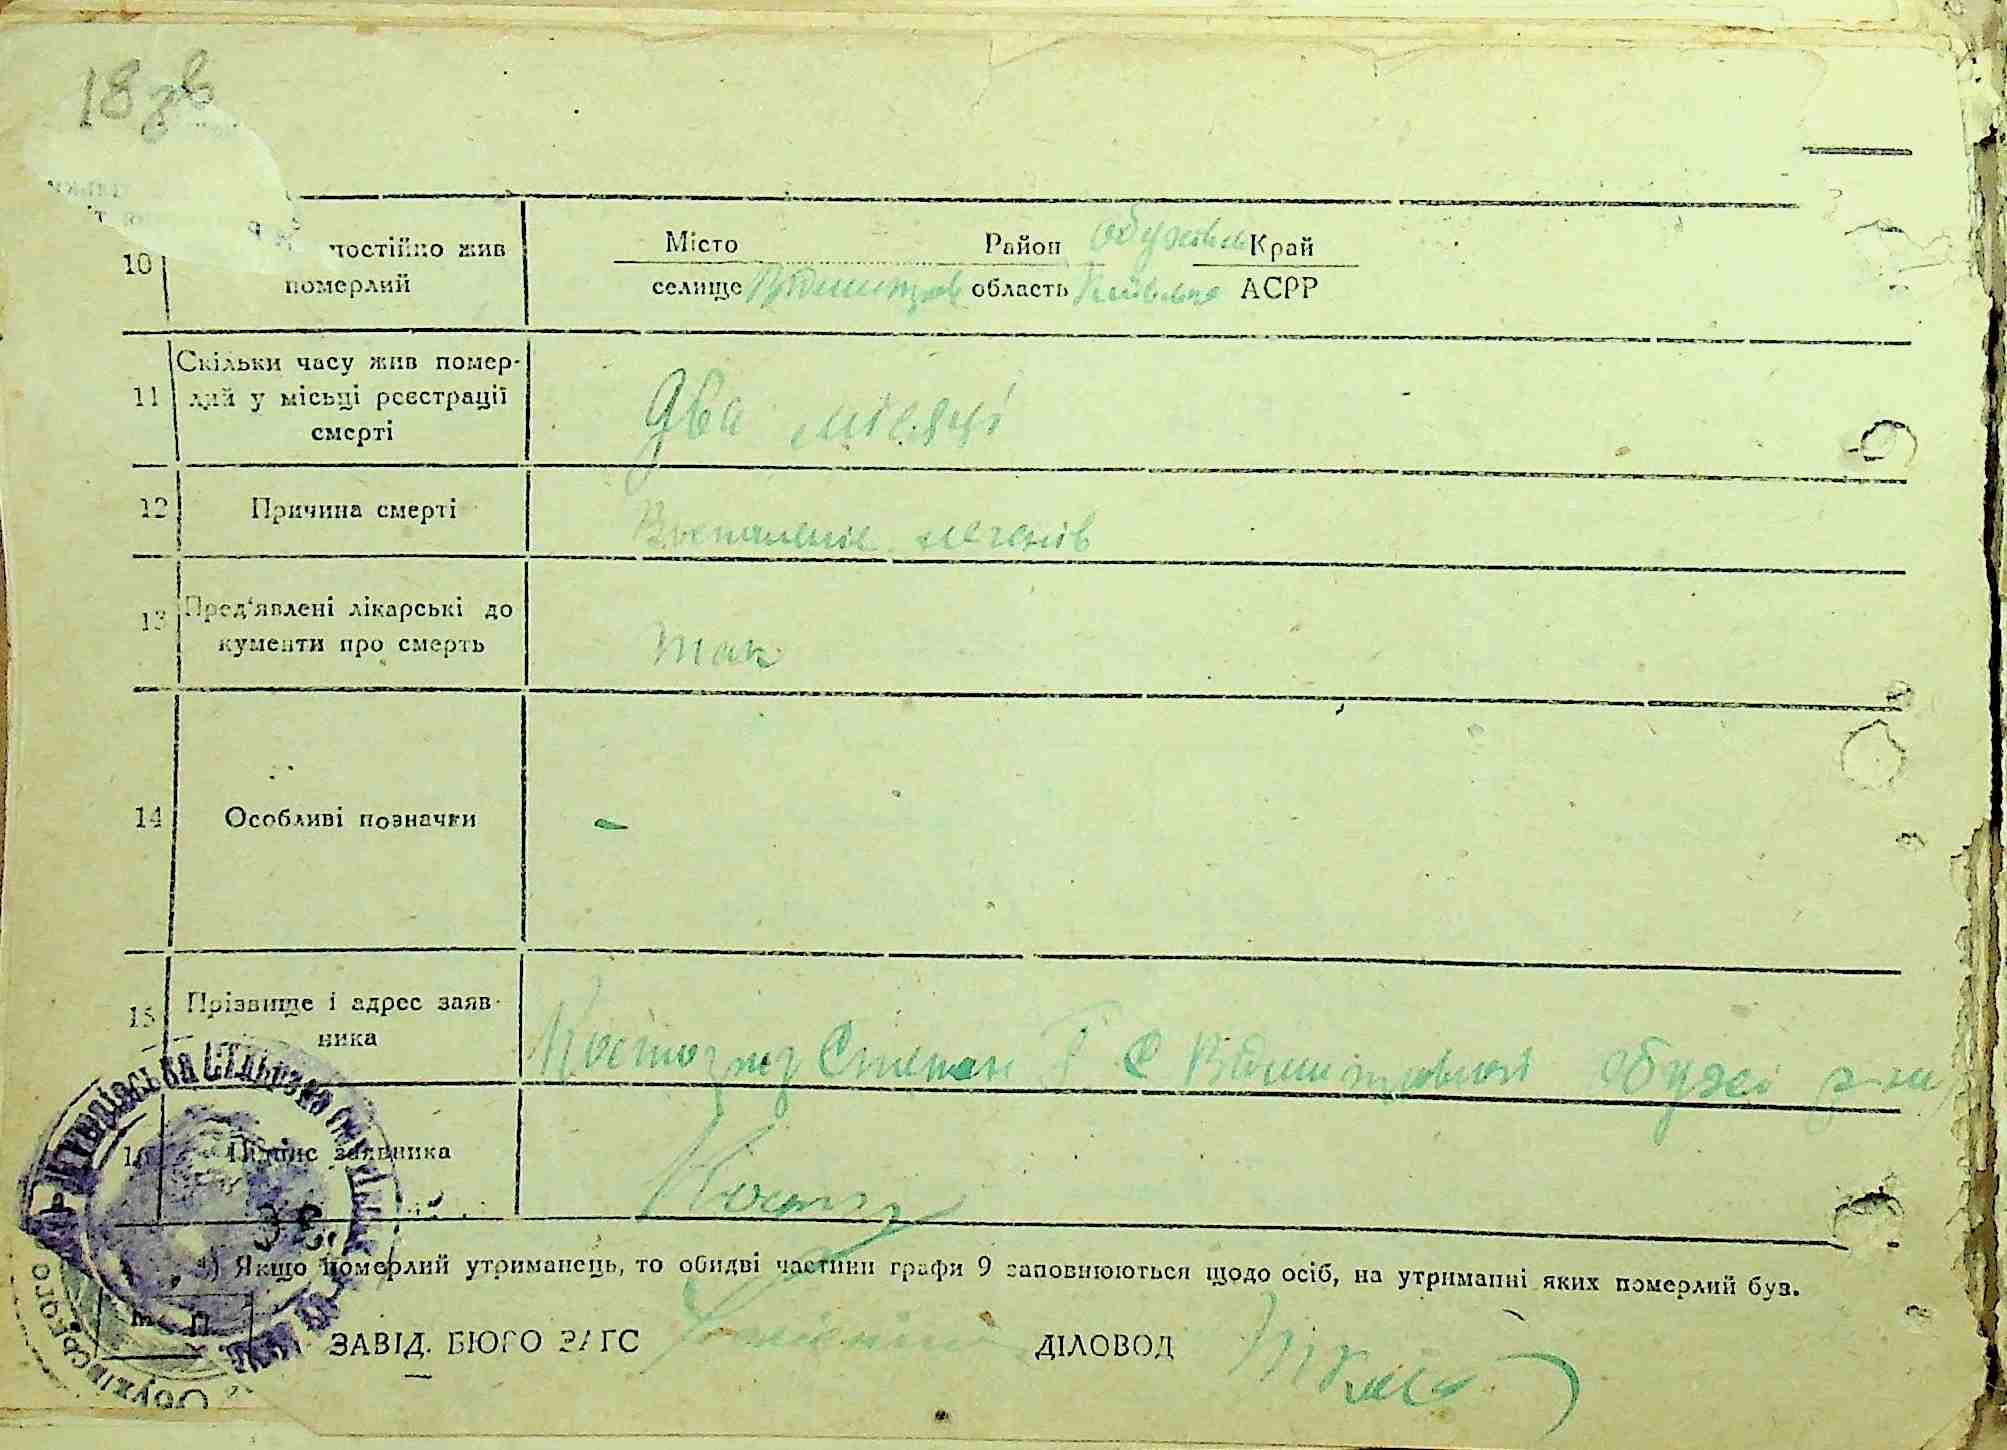 18 зв
10 постійно жив
померлий
Місто Район обухівськ Край
селище область Київська АСРР
11 Скільки часу жив помер-
лий у місьці реєстрації
смерті
Два місяці
12 Причина смерті
Воспаленіє легенів
13 Пред'явлені лікарські до
кументи про смерть
так
14 Особливі позначки
-
15 Прізвище і адрес заяв-
ника
Степан обухі р-ну
16 Підпис заявника
*) Якщо померлий утриманець, то обидві частини графи 9 заповнюються щодо осіб, на утриманні яких померлий був.
М. П.
ЗАВІД. БЮРО ЗАГС ДІЛОВОД
Обухівського